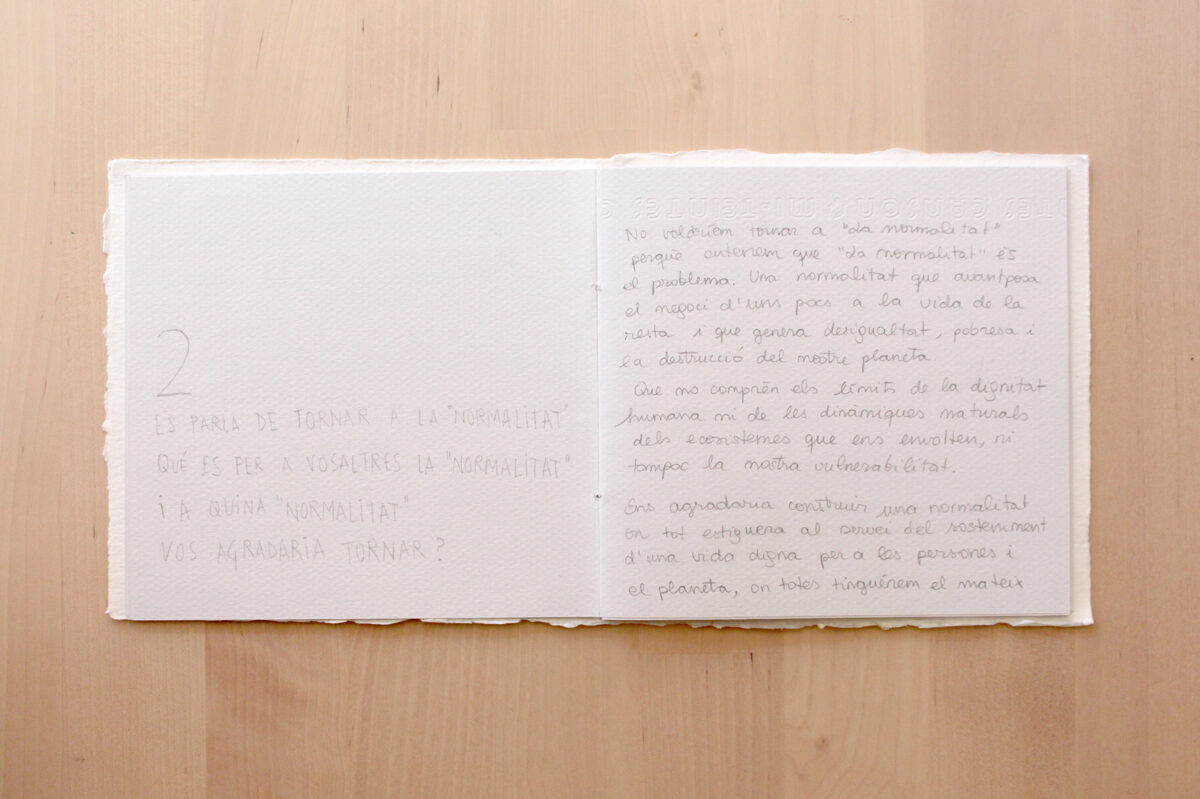 2
ES PARLA DE TORNAR A LA "NORMALITAT"
QUÉ ES PER A VOSALTRES LA "NORMALITAT"
i A QUINA "NORMALITAT"
VOS AGRADARIA TORNAR?
CANSON & MI-TEINTES
No voldríem tornar a "La normalitat"
perquè entenem que "La normalitat" és
el problema. Una normalitat que avantposa
el negoci d'uns pocs a la vida de la
resta i que genera desigualtat, pobresa i
la destrucció del nostre planeta
Que no comprén els límits de la dignitat
humana ni de les dinàmiques naturals
dels ecosistemes que ens envolten, ni
tampoc la nostra vulnerabilitat.
Ens agradaria construir una normalitat
on tot estiguera al servei del sosteniment
d'una vida digna per a les persones i
el planeta, on totes tinguérem el mateix